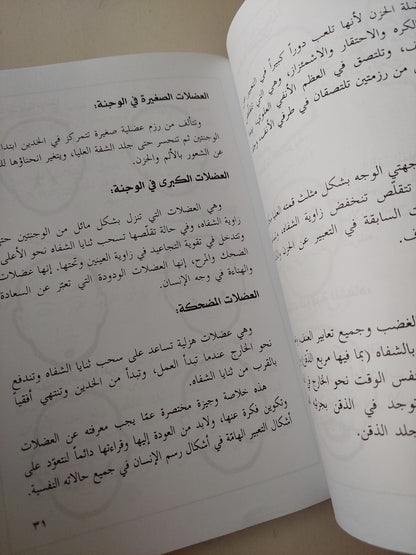 العضلات الصغيرة في الوجنة:
وتتألف من رزم عضلية صغيرة تتمركز في الخدين ابتدا
الوجنتين ثم تنحسر حتى جلد الشفة العليا، ويتغير انحناؤها للد
عن الشعور بالألم والحزن.
العضلات الكبرى في الوجنة:
وهي العضلات التي تنزل بشكل مائل من الوجنتين حتى
زاوية الشفاه، وفي حالة تقلّصها تسحب ثنايا الشفاه نحو الأعلى
وتتدخل في تقوية التجاعيد في زاوية العينين وتحتها. إنها عضلات
الضحك والمرح، إنها العضلات الودودة التي تعبّر عن السعادة
والهناءة في وجه الإنسان.
العضلات المضحكة:
وهي عضلات هزلية تساعد على سحب ثنايا الشفاه وتندفع
نحو الخارج عندما تبدأ العمل، وتبدأ من الخدين وتنتهي أفقياً
بالقرب من ثنايا الشفاه.
هذه خلاصة وجيزة مختصرة عمّا يجب معرفته عن العضلات
وتكوين فكرة عنها، ولابد من العودة إليها وقراءتها دائماً لنتعوّد على
أشكال التعبير الهامّة في أشكال رسم الإنسان في جميع حالاته النفسية.
٣١
ضلة الحزن لأنها تلعب دوراً كبيراً في
لكره والاحتقار والاشمئزاز، وهي
ف، وتلتصق في العظم الأنفي
من رزمتين تلتصقان في طرفي الأنف
جهتي الوجه بشكل مثلث قمته
تقلّص تنخفض زاوية الشفاه
السابقة في التعبير عن الحزن
ف.
لغضب وجميع تعابير العنف
بالشفاه (بما فيها مربع الذقن)
نفس الوقت نحو الخارج
توجد في الذقن بجزيه
جلد الذقن.